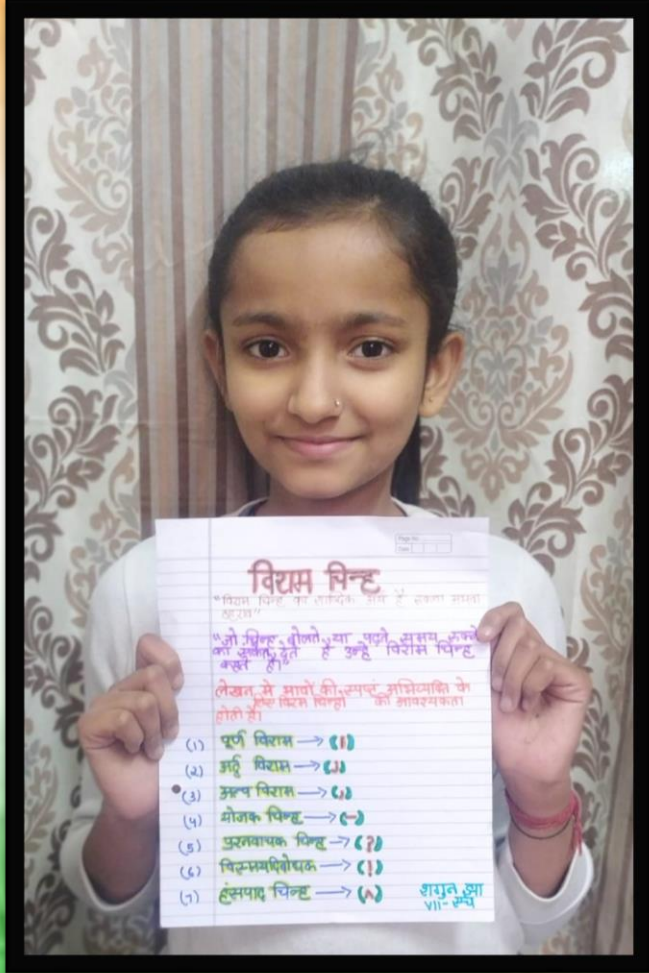 Page No.
Date
विराम चिन्ह
"विराम चिन्ह का शाब्दिक अर्थ है रुकना अथवा
ठहरना"
"जो चिन्ह बोलते या पढ़ते समय रुकने
का संकेत देते है उन्हे विराम चिन्ह
कहते है।"
लेखन मे भावों की स्पष्ट अभिव्यक्ति के
लिए विराम चिन्हों की आवश्यकता
होती है।
(1) पूर्ण विराम → (।)
(2) अर्द्ध विराम → (;)
(3) अल्प विराम → (,)
(4) योजक चिन्ह → (-)
(5) प्रश्नवाचक चिन्ह → (?)
(6) विस्मयदिबोधक → (!)
(7) हंसपाद चिन्ह → (^)
शगुन झा
VII- एच